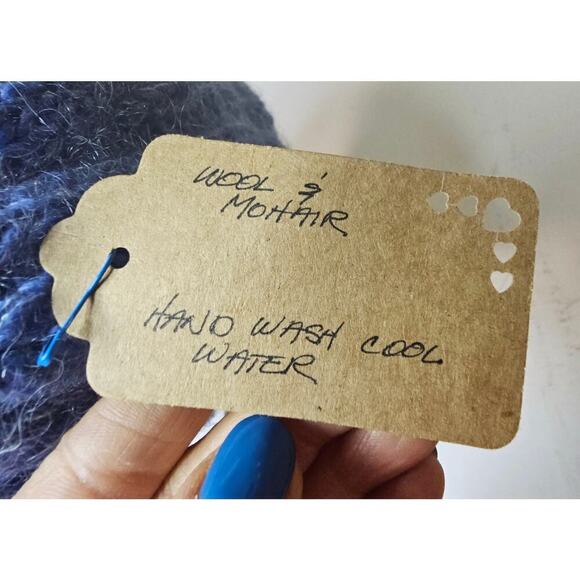 WOOL &
MOHAIR
HAND WASH COOL
WATER